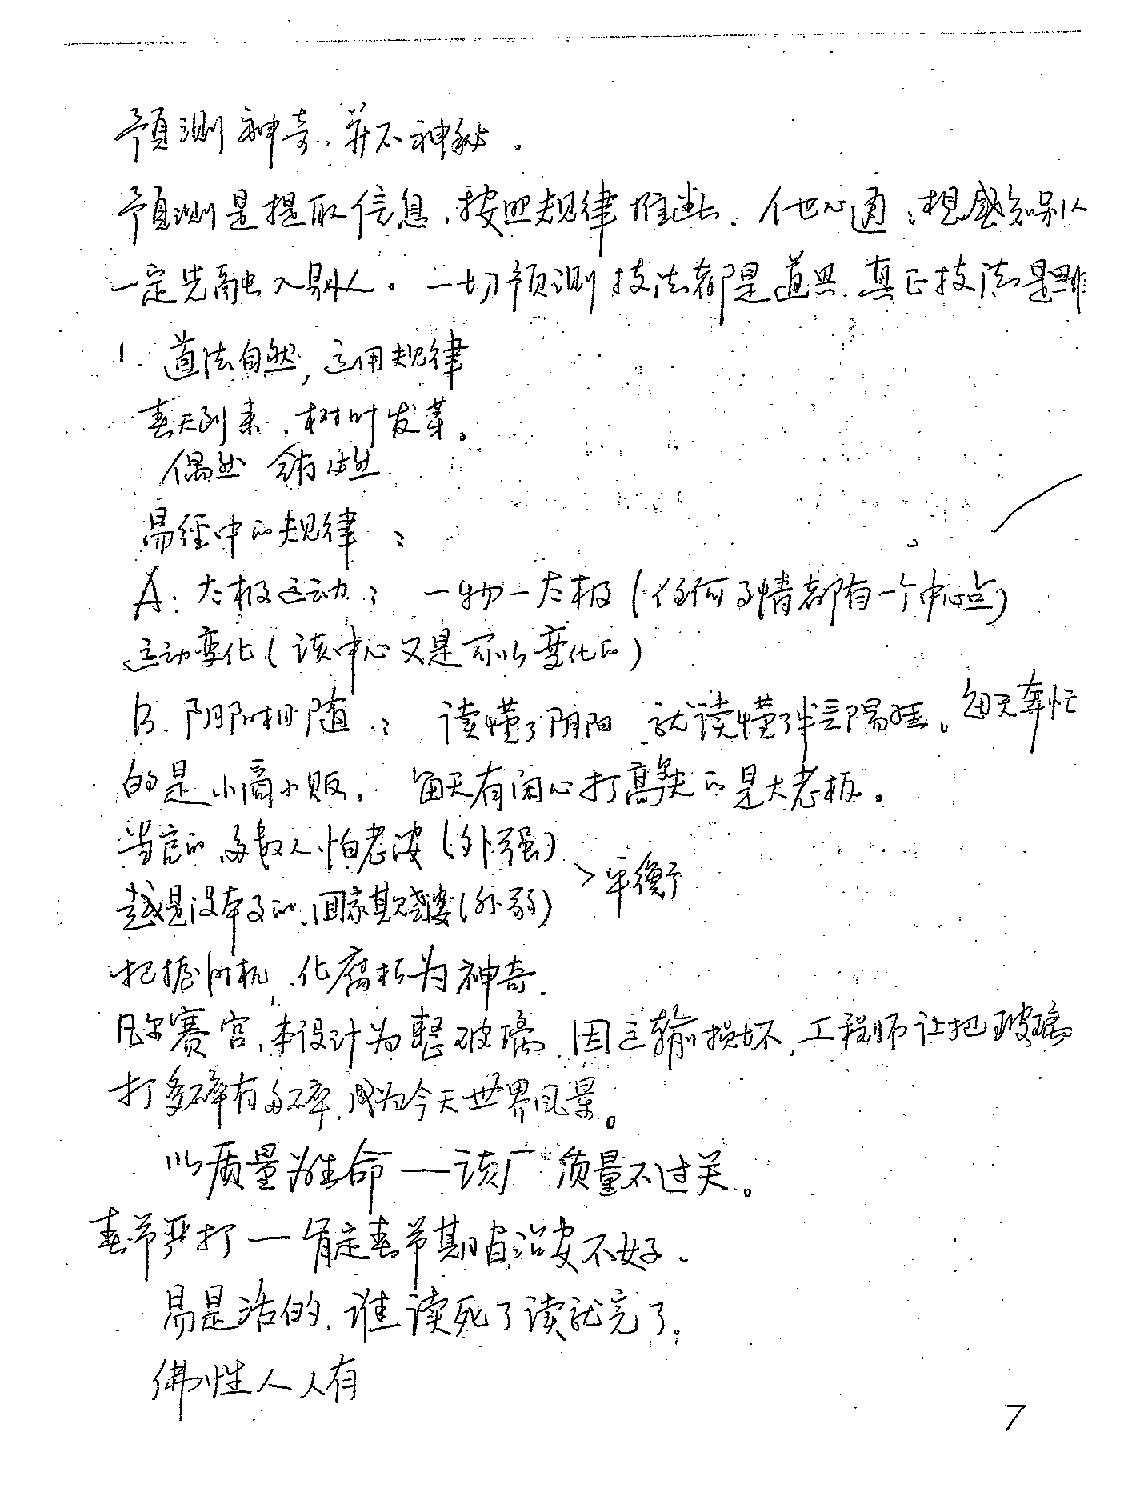 预测神奇，并不神秘。
预测是提取信息，按照规律推断。他心通：想感知别人
一定先融入别人。一切预测技法都是道具，真正技法是
1. 道法自然，运用规律
春天到来，树叶发芽。
偶然 含有 必然
易经中的规律：
A. 太极运动：一物一太极（任何事情都有一个中心点）
运动变化（该中心又是可以变化的）
B. 阴阳相随：读懂了阴阳 就读懂了半部易经。每天奔忙
的是小商小贩，每天有闲心打高尔夫的是大老板。
当官的，多数人怕老婆（外强）
越是没本事的，回家欺老婆（外弱） >平衡
把握时机，化腐朽为神奇。
凡尔赛宫，本设计为整玻璃，因运输损坏，工程师让把玻璃
打多碎有多碎，成为今天世界风景。
以质量为生命——该厂质量不过关。
春节严打—肯定春节期间治安不好。
易是活的，谁读死了读就完了。
佛性人人有
7